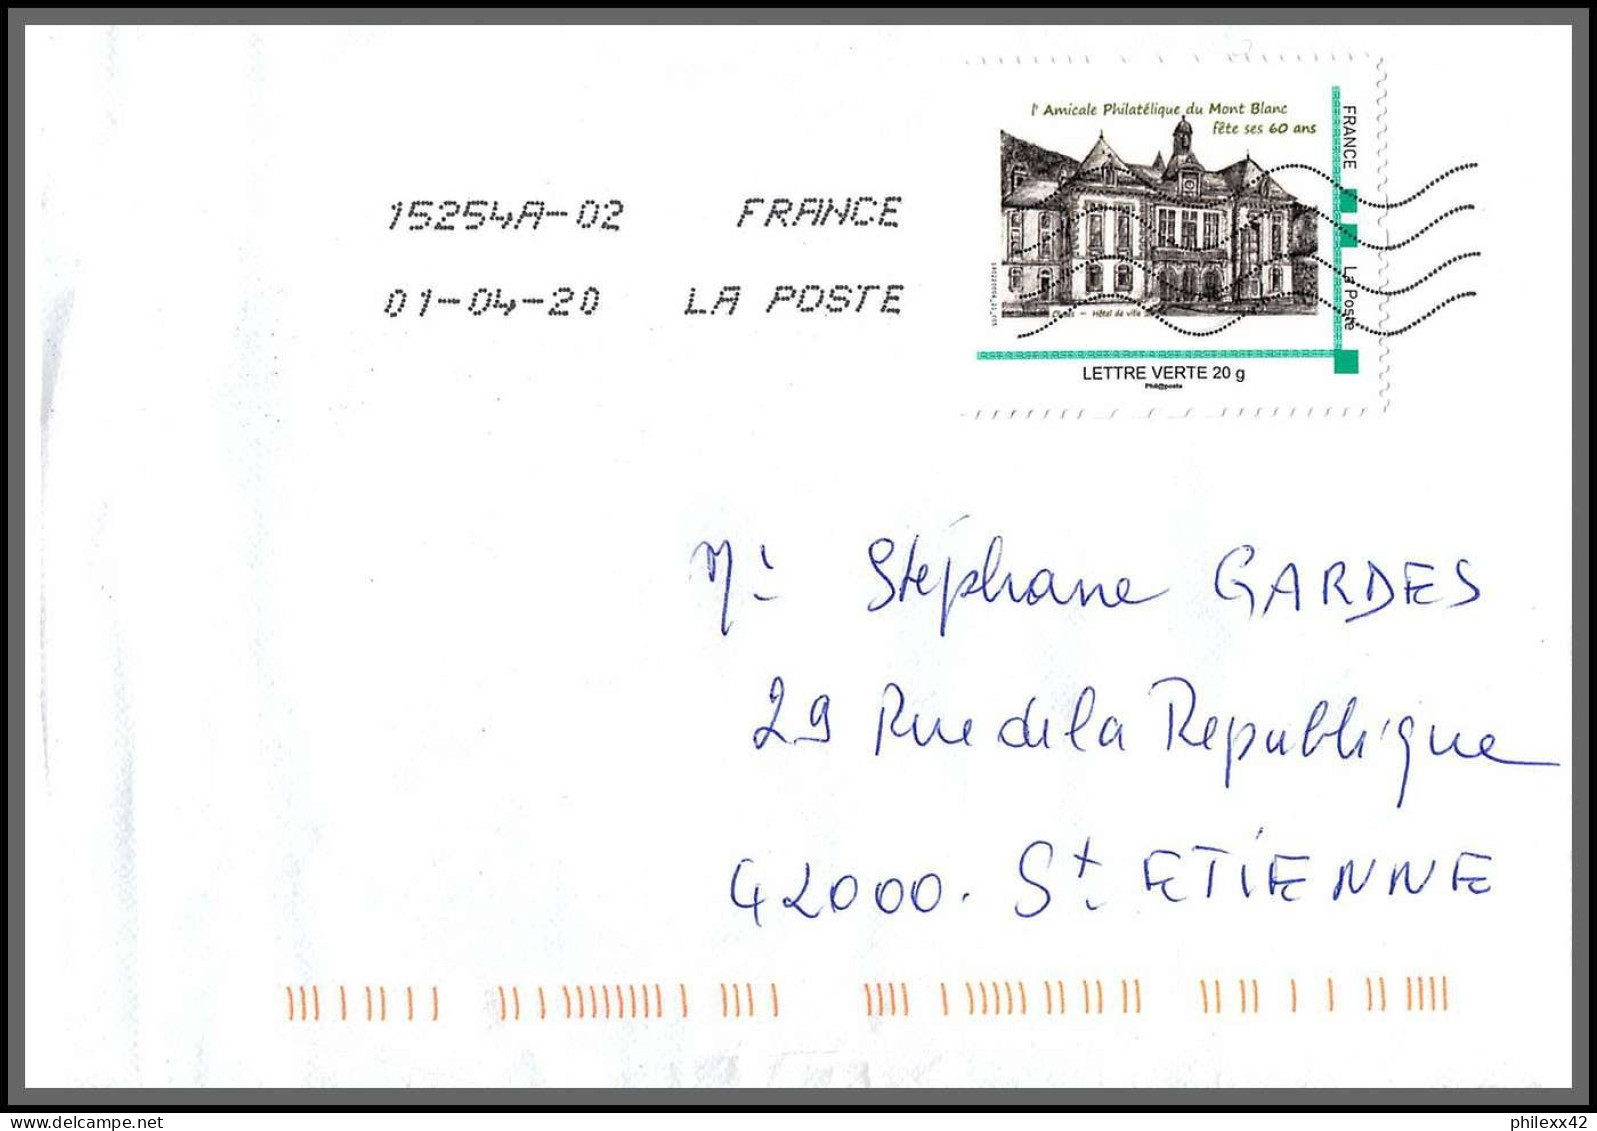 l' Amicale Philatélique du Mont Blanc
fête ses 60 ans
FRANCE
La Poste
Cluses - Hôtel de ville
LETTRE VERTE 20 g
Phil@poste
15254A-02 FRANCE
01-04-20 LA POSTE
Mr Stéphane GARDES
29 Rue de la Republique
42000. St ETIENNE
philexx42